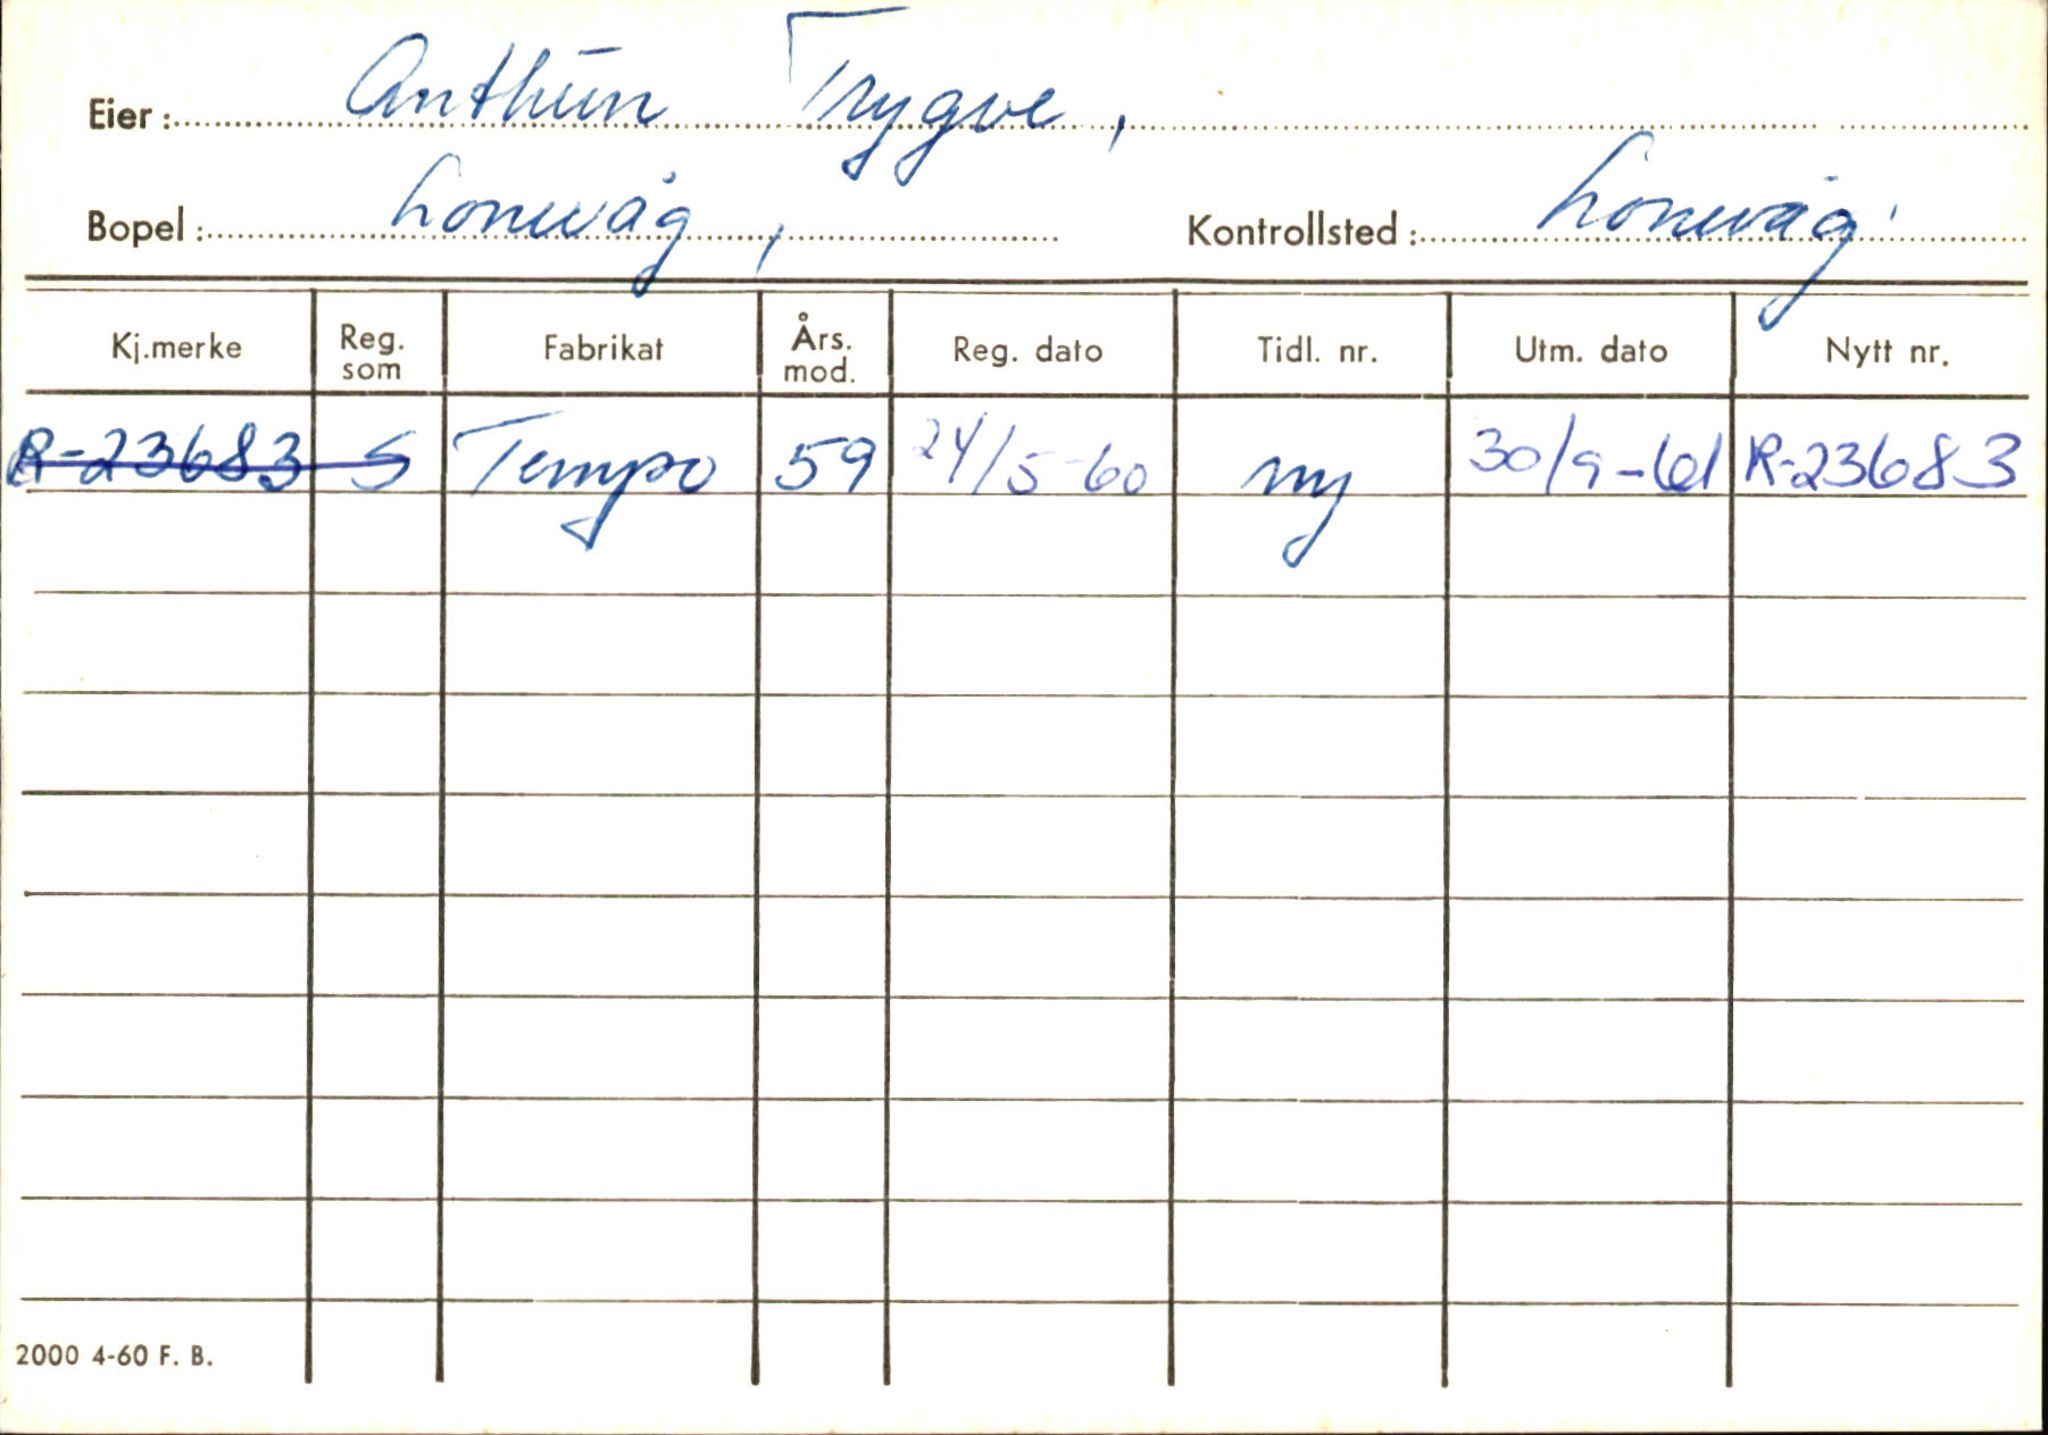 Eier: Anthun Trygve,
Bopel: Lonevåg, Kontrollsted: Lonevåg
Kj.merke Reg. som Fabrikat Års. mod. Reg. dato Tidl. nr. Utm. dato Nytt nr.
R-23683 S Tempo 59 24/5-60 ny 30/9-61 R-23683
2000 4-60 F. B.